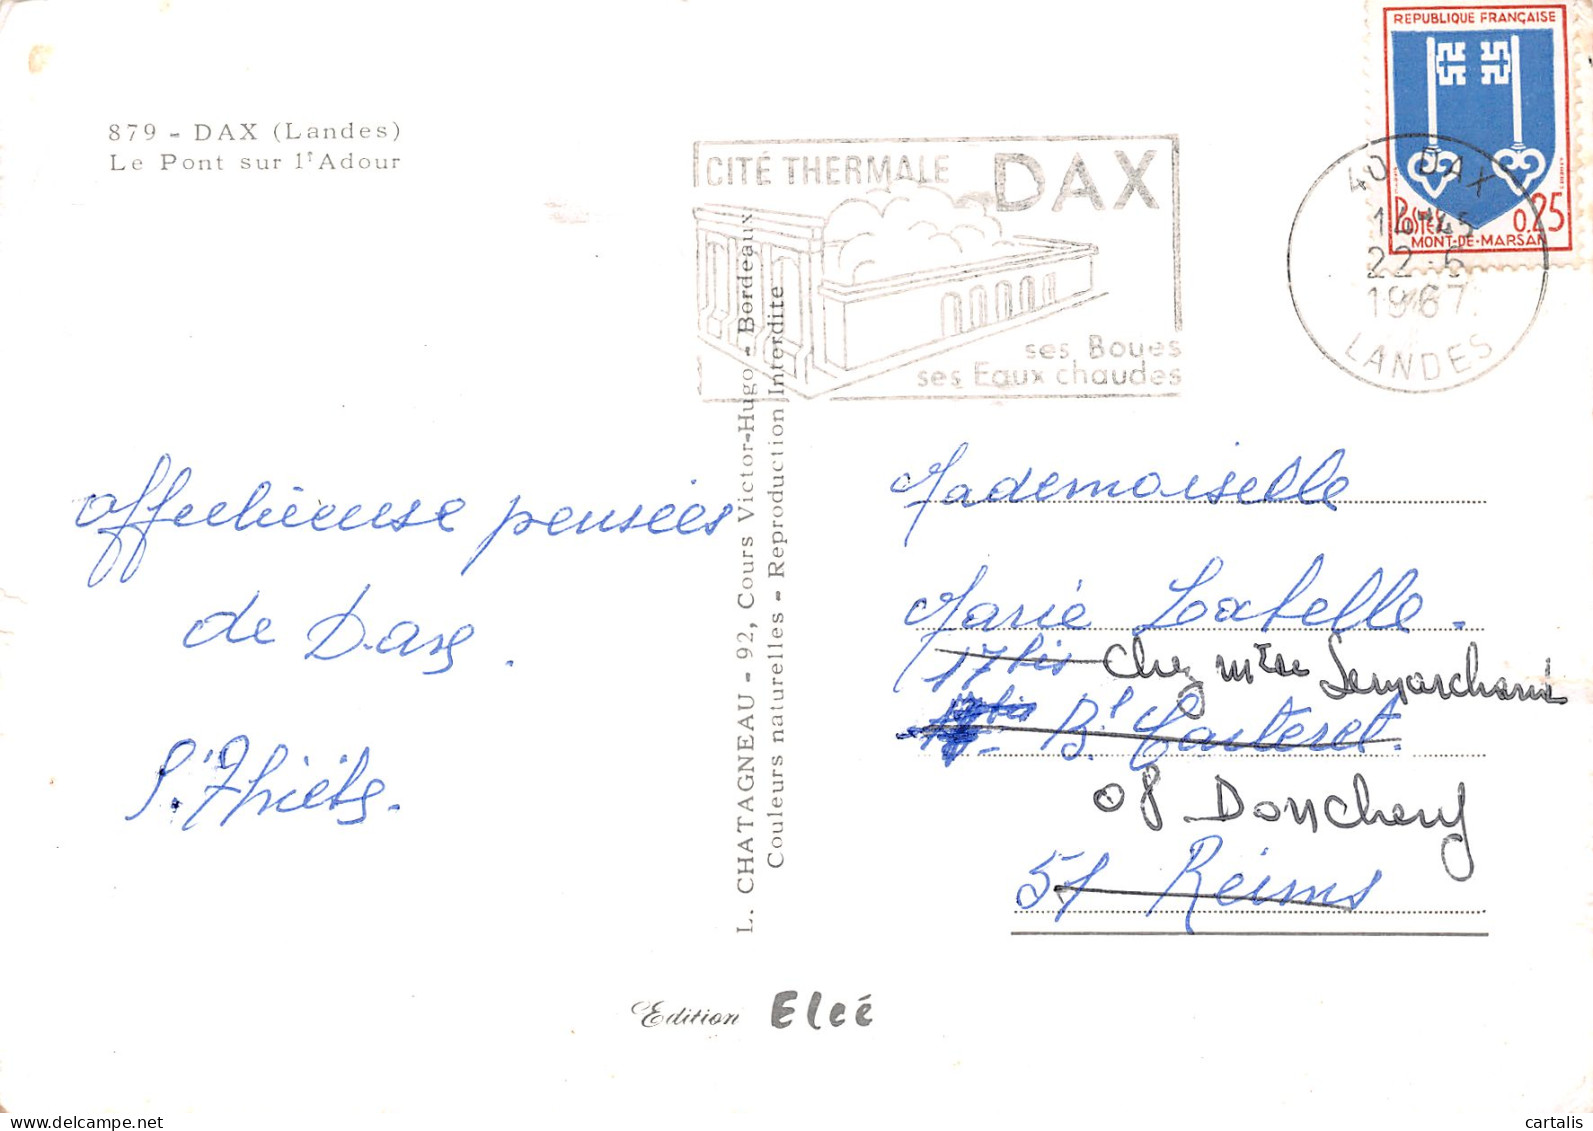 879 - DAX (Landes)
Le Pont sur l'Adour
CITÉ THERMALE DAX
ses Boues
ses Eaux chaudes
REPUBLIQUE FRANÇAISE
POSTES 0,25
MONT-DE-MARSAN
40 DAX
14-45
22-6
1967
LANDES
Affectueuse pensées
de Dax.
L. CHATAGNEAU - 92, Cours Victor-Hugo - Bordeaux
Couleurs naturelles - Reproduction Interdite
Mademoiselle
Marie Labelle.
17 bis chez Mme Lemarchand
17 bis Bd Carteret.
08 Donchery
51 Reims
Edition Elcé
cartalis